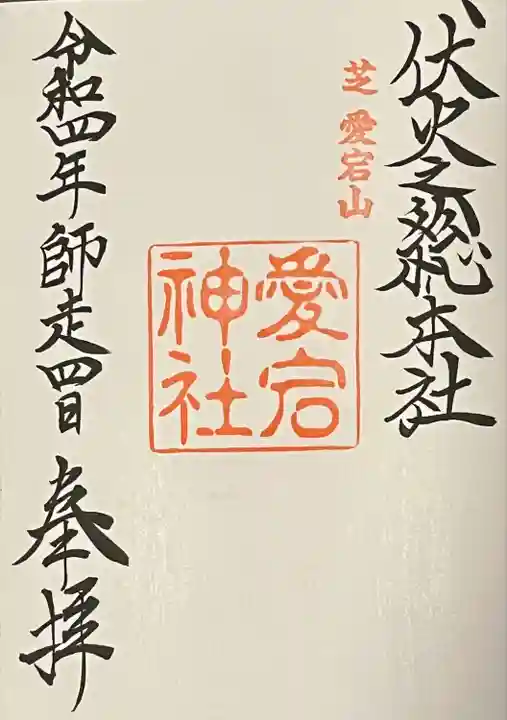 伏火之総本社
芝 愛宕山
愛宕
神社
令和四年師走四日
奉拝